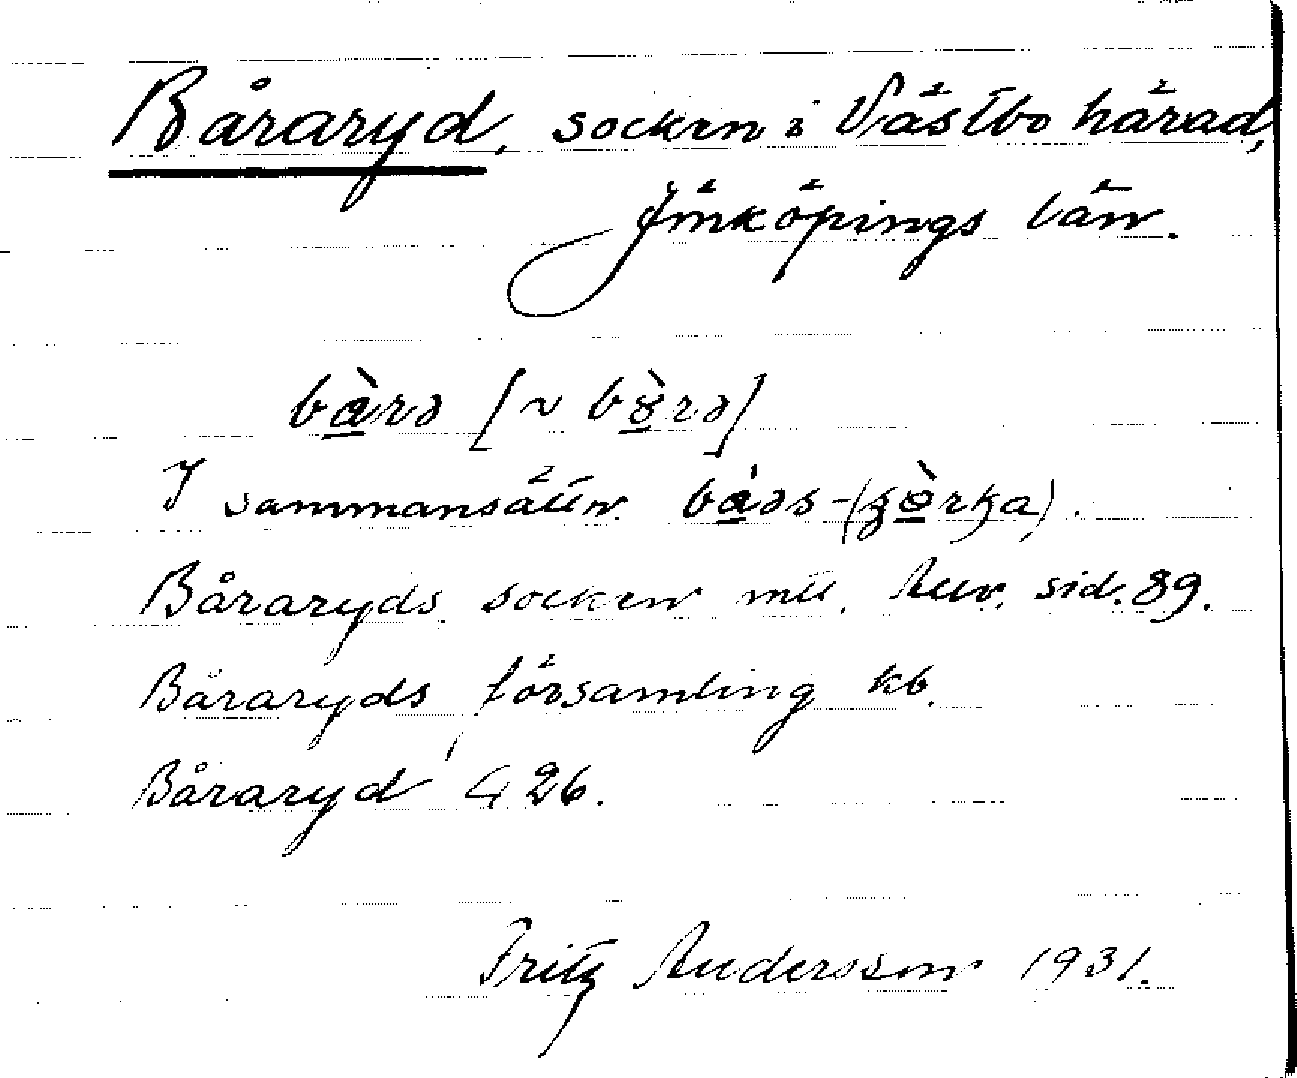 Båraryd, socken i Västbo härad,
Jönköpings län.
bàrə [~ bòrə]
I sammansättn. báəs-
Båraryds socken mtl. Utv. sid. 89.
Båraryds församling kb.
Båraryd G 26.
Fritz Andersson 1931.